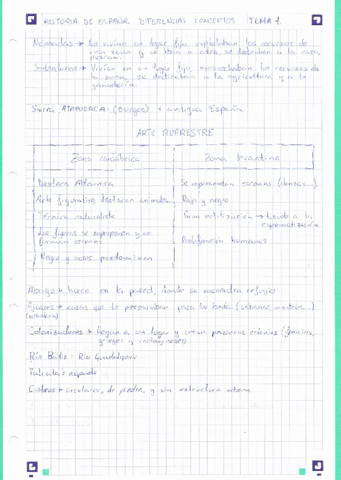 HISTORIA DE ESPAÑA. DIFERENCIAS CONCEPTOS TEMA 1
Nómadas → No vivían en lugar fijo, explotaban los recursos de
una zona y se iban a otra, se dedicaban a la caza,
pesca...
Sedentarios → Vivían en un lugar fijo, aprovechaban los recursos de
la zona, se dedicaban a la agricultura y a la
ganadería.
Sierra ATAPUERCA (Burgos) + antigua España
ARTE RUPESTRE
Zona cantábrica
Zona levantina
Destaca Altamira
Se representan escenas (danzas...)
Arte figurativo, destacan animales
Rojo y negro
Técnica naturalista
Gran estilización → tiende a la
esquematización
Las figuras se superponen y no
forman escenas
humanas
Negro y ocres predominan
Abrigo → hueco en la pared, donde se encuentra refugio
Ajuares → cosas que le preparaban para la tumba
Colonizadores → llegan a un lugar y crean pequeñas colonias (fenicios,
griegos y cartagineses)
Río Betis - Río Guadalquivir
circulares, de piedra, y sin estructura urbana